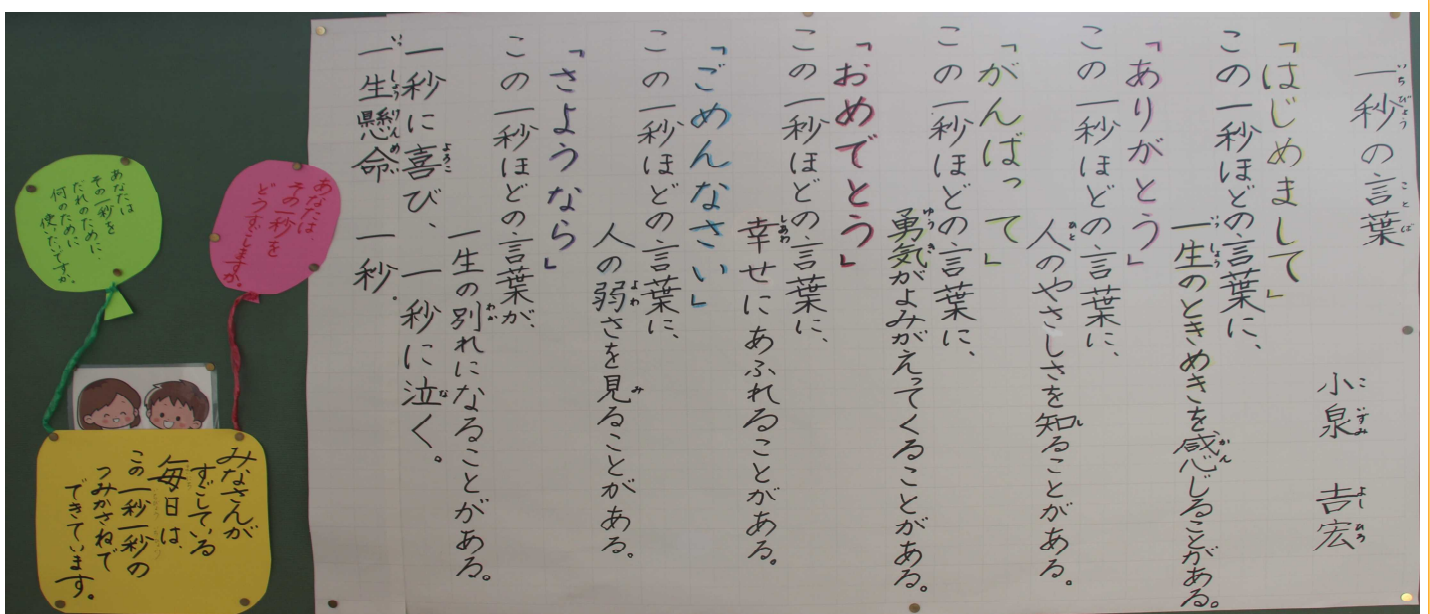 一秒の言葉
小泉 吉宏
「はじめまして」
この一秒ほどの言葉に、
一生のときめきを感じることがある。
「ありがとう」
この一秒ほどの言葉に、
人のやさしさを知ることがある。
「がんばって」
この一秒ほどの言葉に、
勇気がよみがえってくることがある。
「おめでとう」
この一秒ほどの言葉に、
幸せにあふれることがある。
「ごめんなさい」
この一秒ほどの言葉に、
人の弱さを見ることがある。
「さようなら」
この一秒ほどの言葉が、
一生の別れになることがある。
一秒に喜び、一秒に泣く。
一生懸命 一秒。
あなたは、
その一秒を
どうすごしますか。
あなたは
その一秒を
だれのために、
何のために
使いたいですか。
みなさんが
すごしている
毎日は、
この一秒一秒の
つみかさねで
できています。